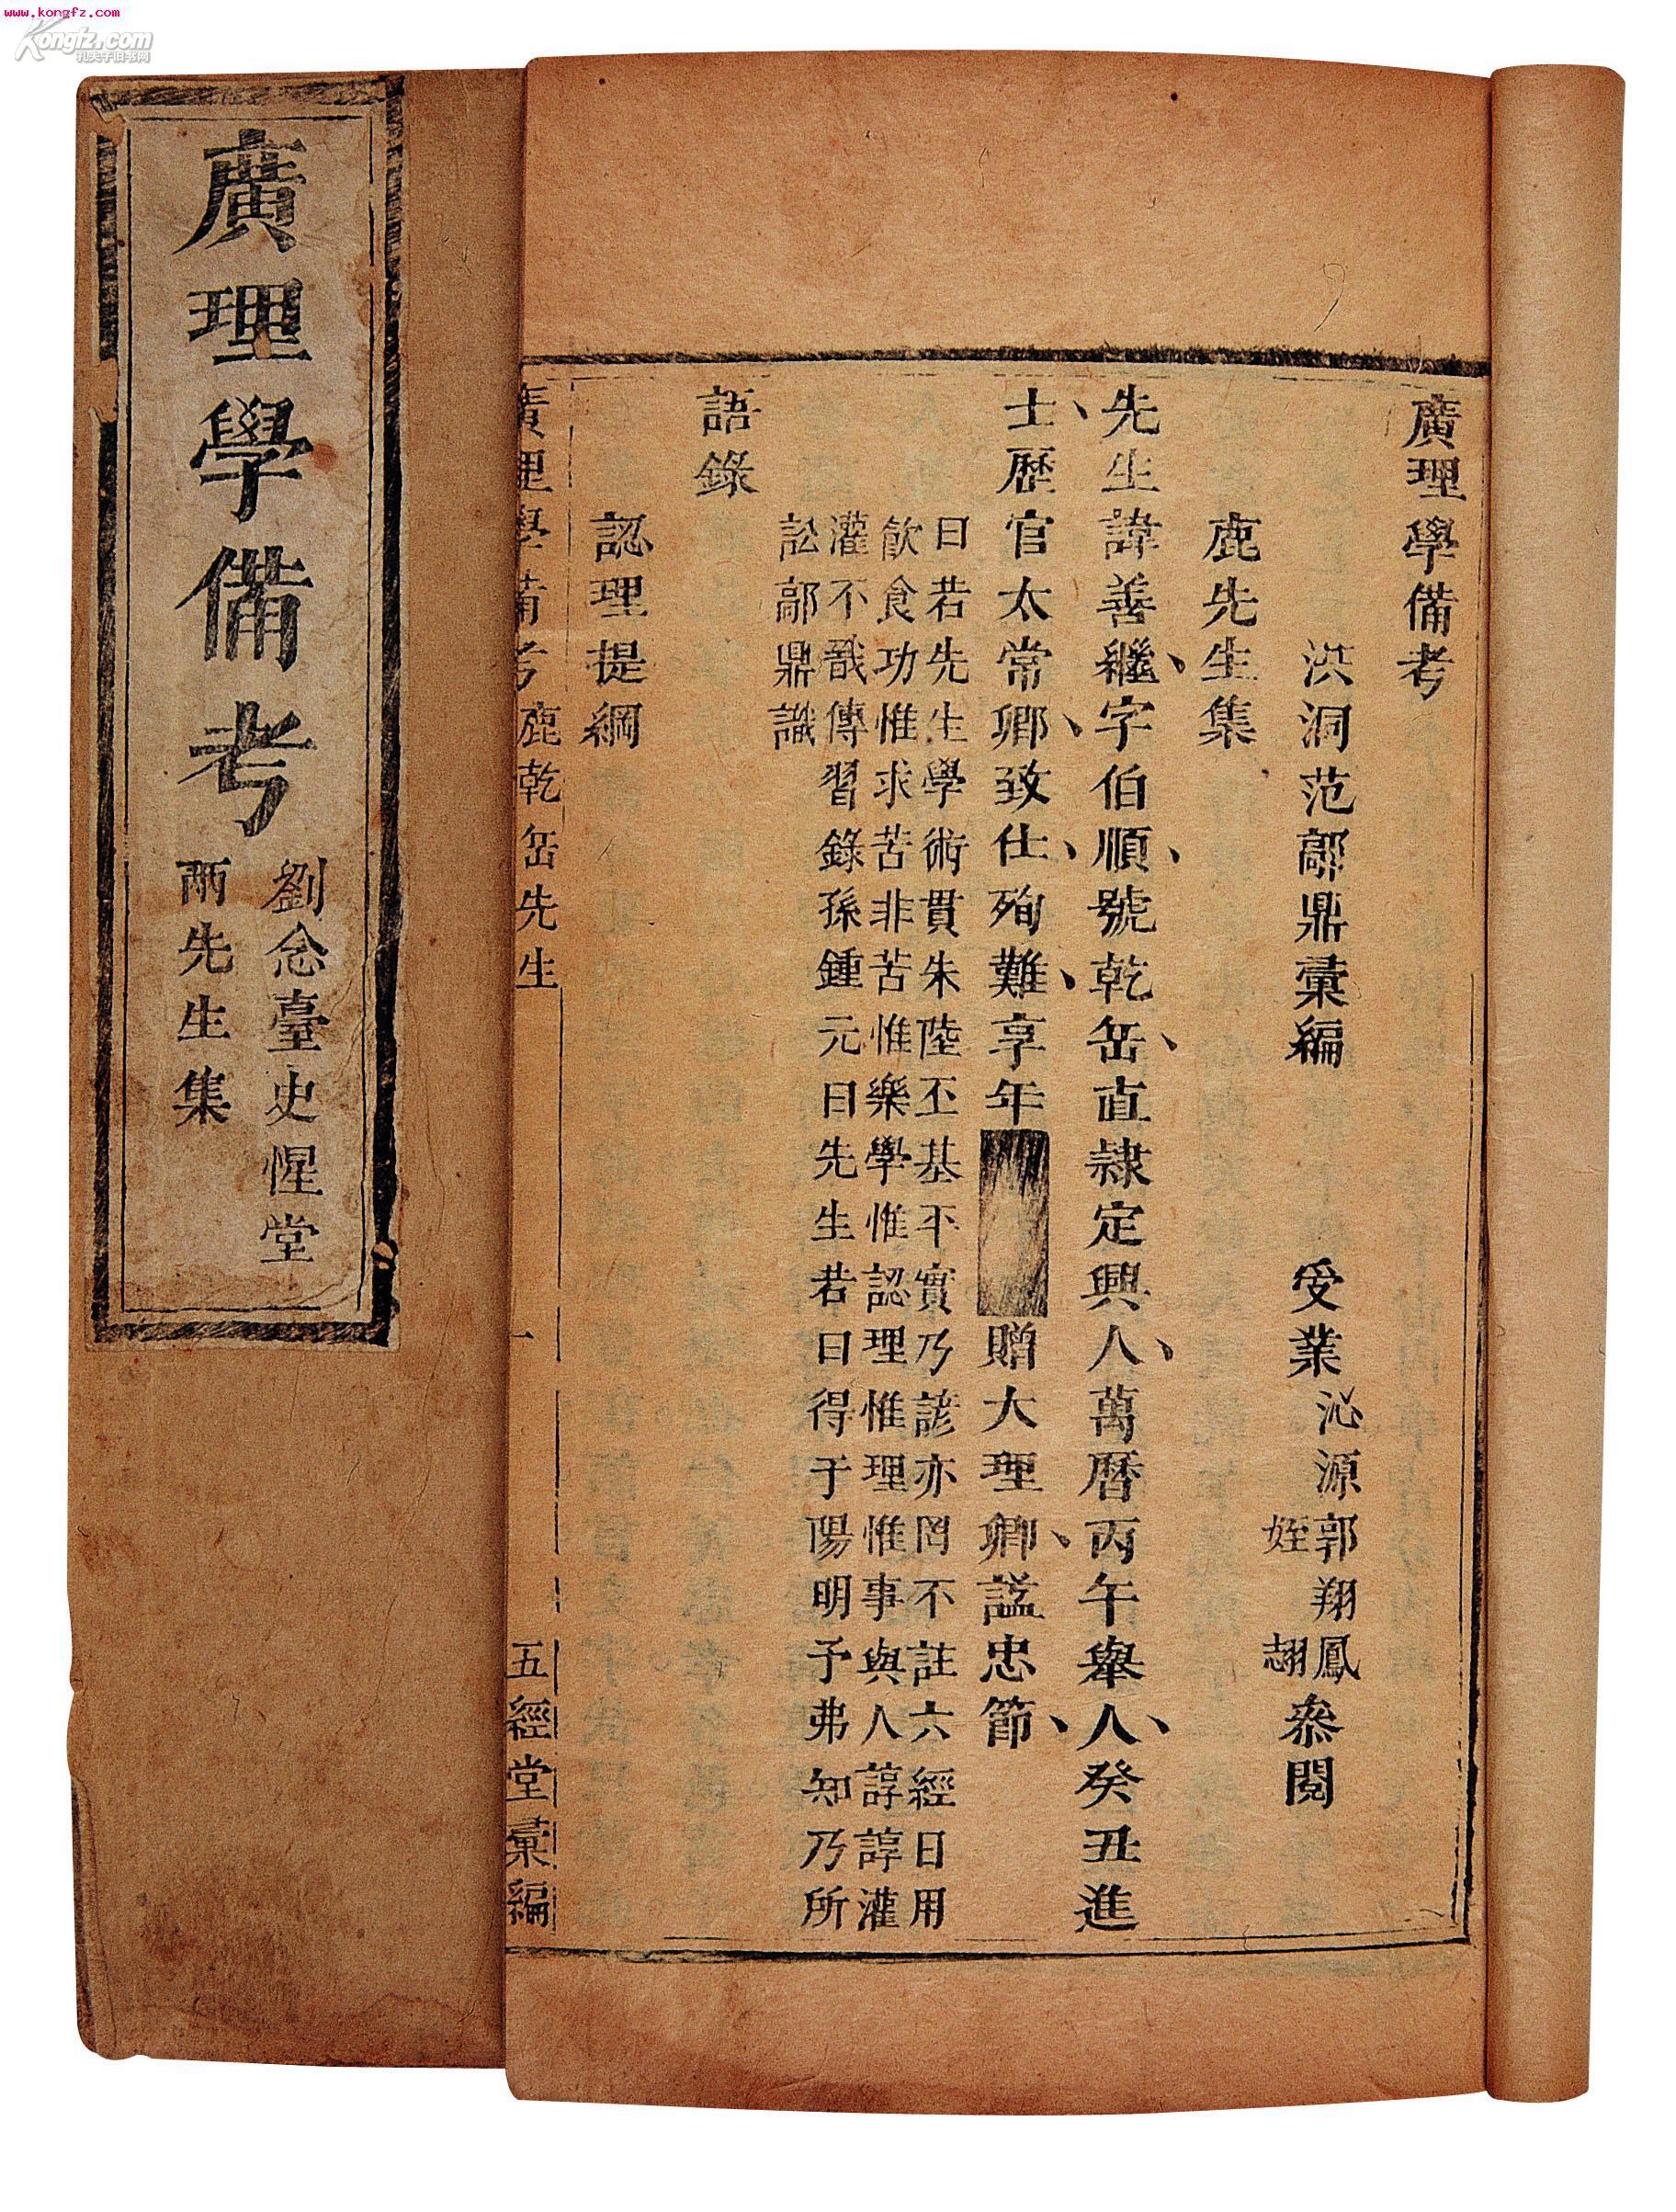 www.kongfz.com
Kongfz.com
孔夫子旧书网
廣理學備考
劉念臺史惺堂
兩先生集
廣理學備考
洪洞范鄗鼎彙編
受業沁源郭翔鳳
姪翃
叅閱
鹿先生集
先生諱善繼字伯順號乾岳直隸定興人萬曆丙午舉人癸丑進
士歷官太常卿致仕殉難享年
贈大理卿諡忠節
曰若先生學術貫朱陸丕基不實乃諺亦罔不註六經日用
飲食功惟求苦非苦惟樂學惟認理惟理惟事與人諄諄灌
灌不戬傳習錄孫鍾元曰先生若曰得于陽明予弗知乃所
訟鄗鼎識
語錄
認理提綱
廣理學備考
鹿乾岳先生
一
五經堂彙編